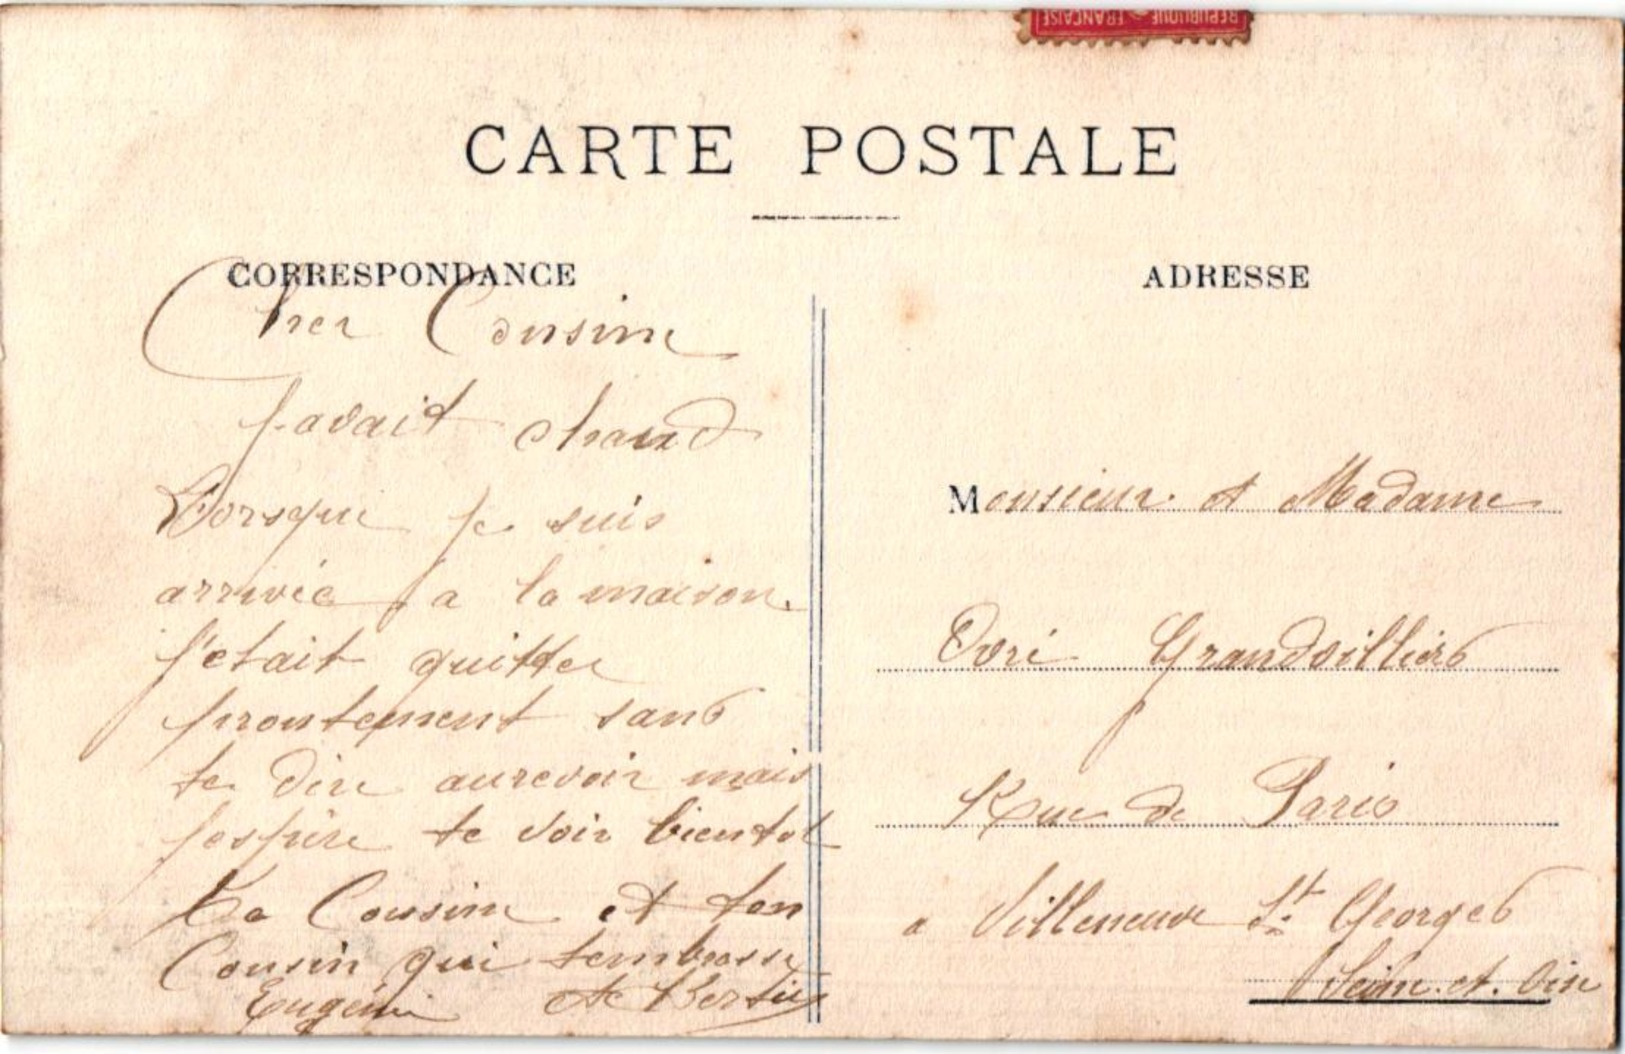 REPUBLIQUE FRANÇAISE
CARTE POSTALE
CORRESPONDANCE
ADRESSE
Cher Cousine
j'avait chaud
Lorsque je suis
arrivée a la maison
j'etait quitter
prontement sans
te dire aurevoir mais
jespère te voir bientot
Ta Cousine et ton
Cousin qui tembrasse
Eugénie et
Monsieur et Madame
Grandvilliers
Rue de Paris
a Villeneuve St. Georges
Seine et Oise